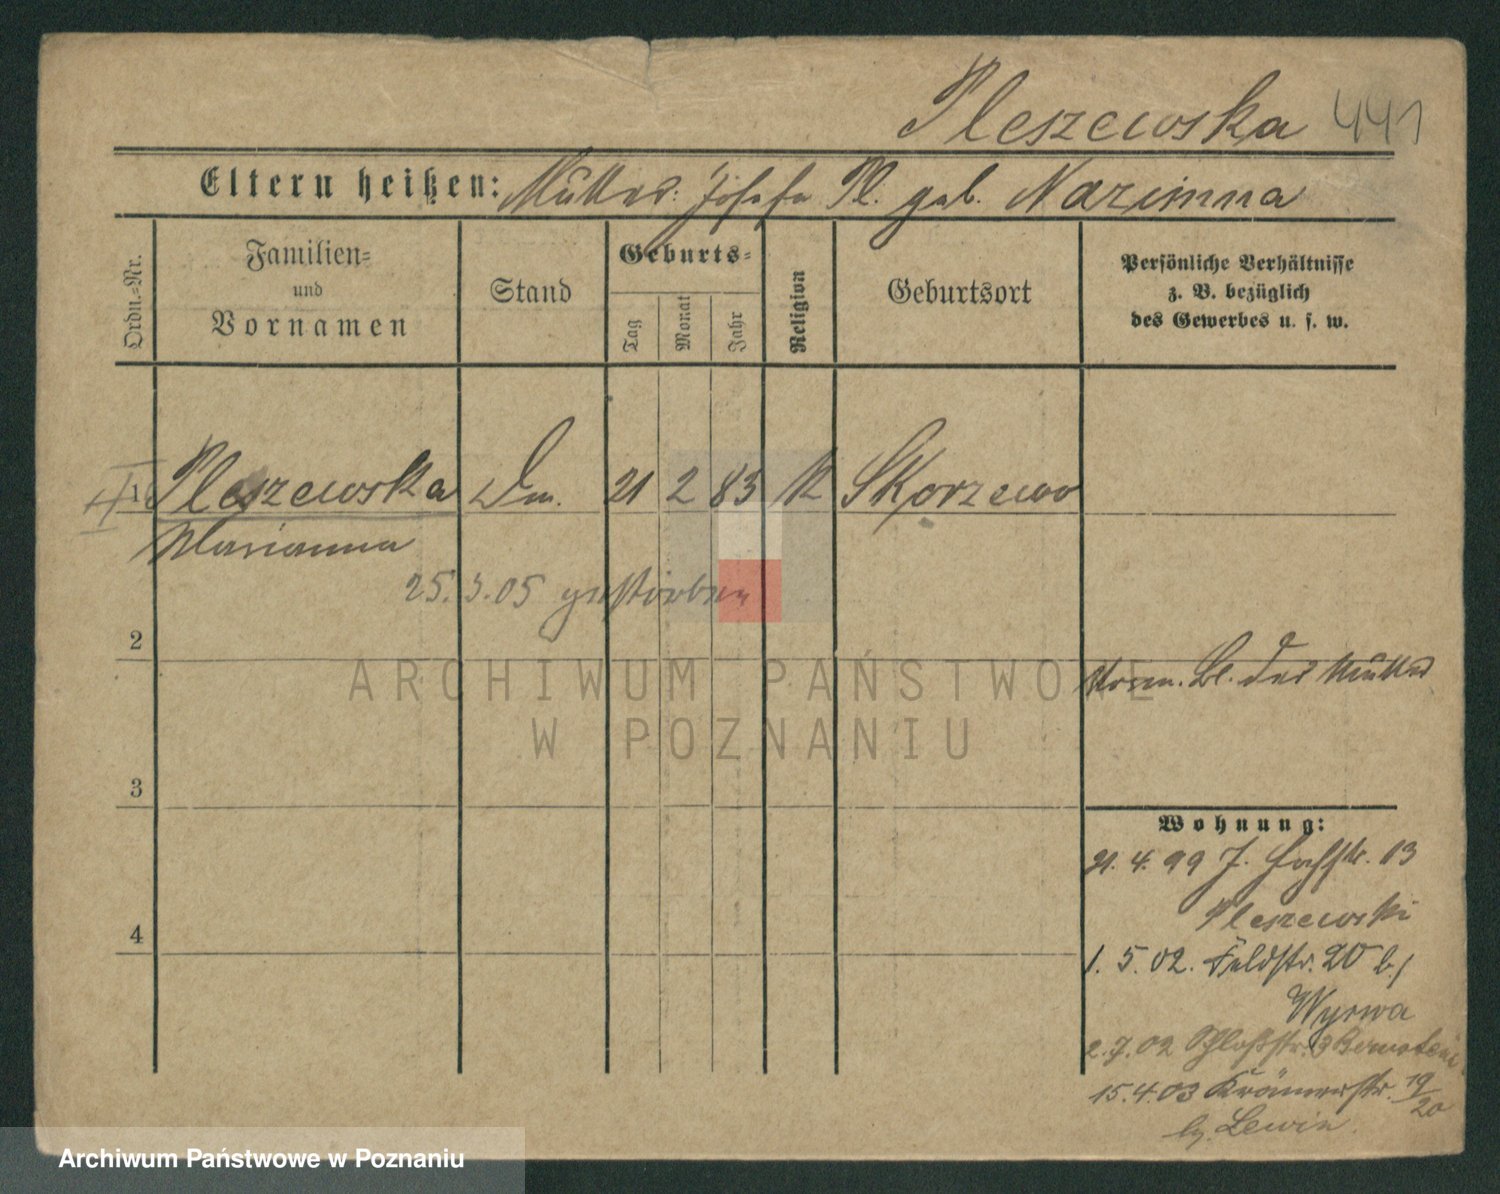 Pleszewska 441
Eltern heißen: Mutter: Josefa Pl. geb. Nazimna
Ordn.-Nr.
Familien-
und
Vornamen
Stand
Geburts-
Tag
Monat
Jahr
Religion
Geburtsort
Persönliche Verhältnisse
z. B. bezüglich
des Gewerbes u. s. w.
1 Pleszewska Dm. 21 2 83 K Skorzewo
Marianna
25.3.05 gestorben
2
Vorm. Bl. der Mutter
ARCHIWUM PAŃSTWOWE
W POZNANIU
3
Wohnung:
21.4.99 J. 13
Pleszewski
4
1.5.02. Feldstr. 20 b./
Wyrwa
2.7.02 Schloßstr. 3
15.4.03 Krämerstr. 19/20
by. Lewin
Archiwum Państwowe w Poznaniu